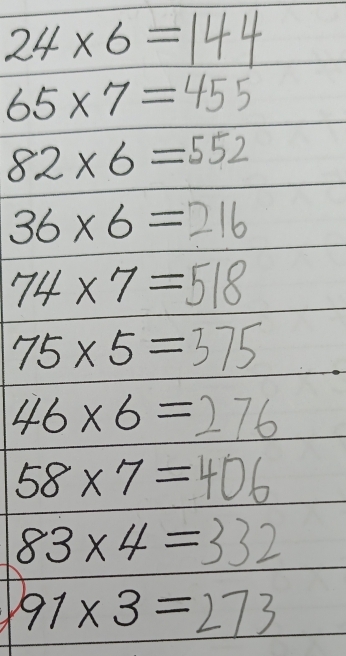 24 × 6 = 144
65 × 7 = 455
82 × 6 = 552
36 × 6 = 216
74 × 7 = 518
75 × 5 = 375
46 × 6 = 276
58 × 7 = 406
83 × 4 = 332
91 × 3 = 273